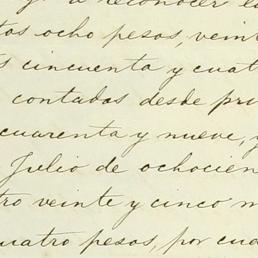 a reconocer la
tos ocho pesos, veint
s cincuenta y cuat
contadas desde pri
cuarenta y nueve, y
Julio de ochocien
tro veinte y cinco m
cuatro pesos, por cua